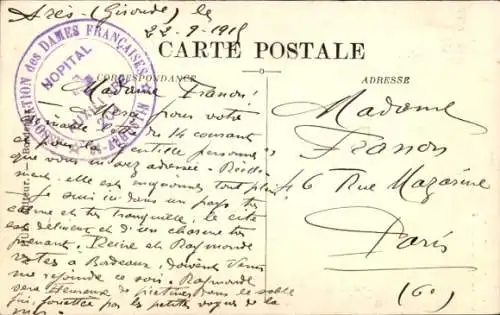 Arès (Gironde) le
22-9-1915
CARTE POSTALE
CORRESPONDANCE
ADRESSE
ASSOCIATION des DAMES FRANÇAISES
HOPITAL
AUXILIAIRE
Madame Franon!
Merci pour votre
aimable lettre du 14 courant
et pour la gentille personne
que vous m'avez adressée.
ment, elle est mignonne tout plein!
Je suis ici dans un pays très
calme et très tranquille, le site
est délicieux et d'un charme très
prenant. Reine et Raymonde
restées à Bordeaux, doivent venir
me rejoindre ce soir. Raymonde
sera heureuse de piétiner dans le sable
fin, fouettée par les petites vagues de la
mer
Madame
Franon
46 Rue Mazarine
Paris
(6e)